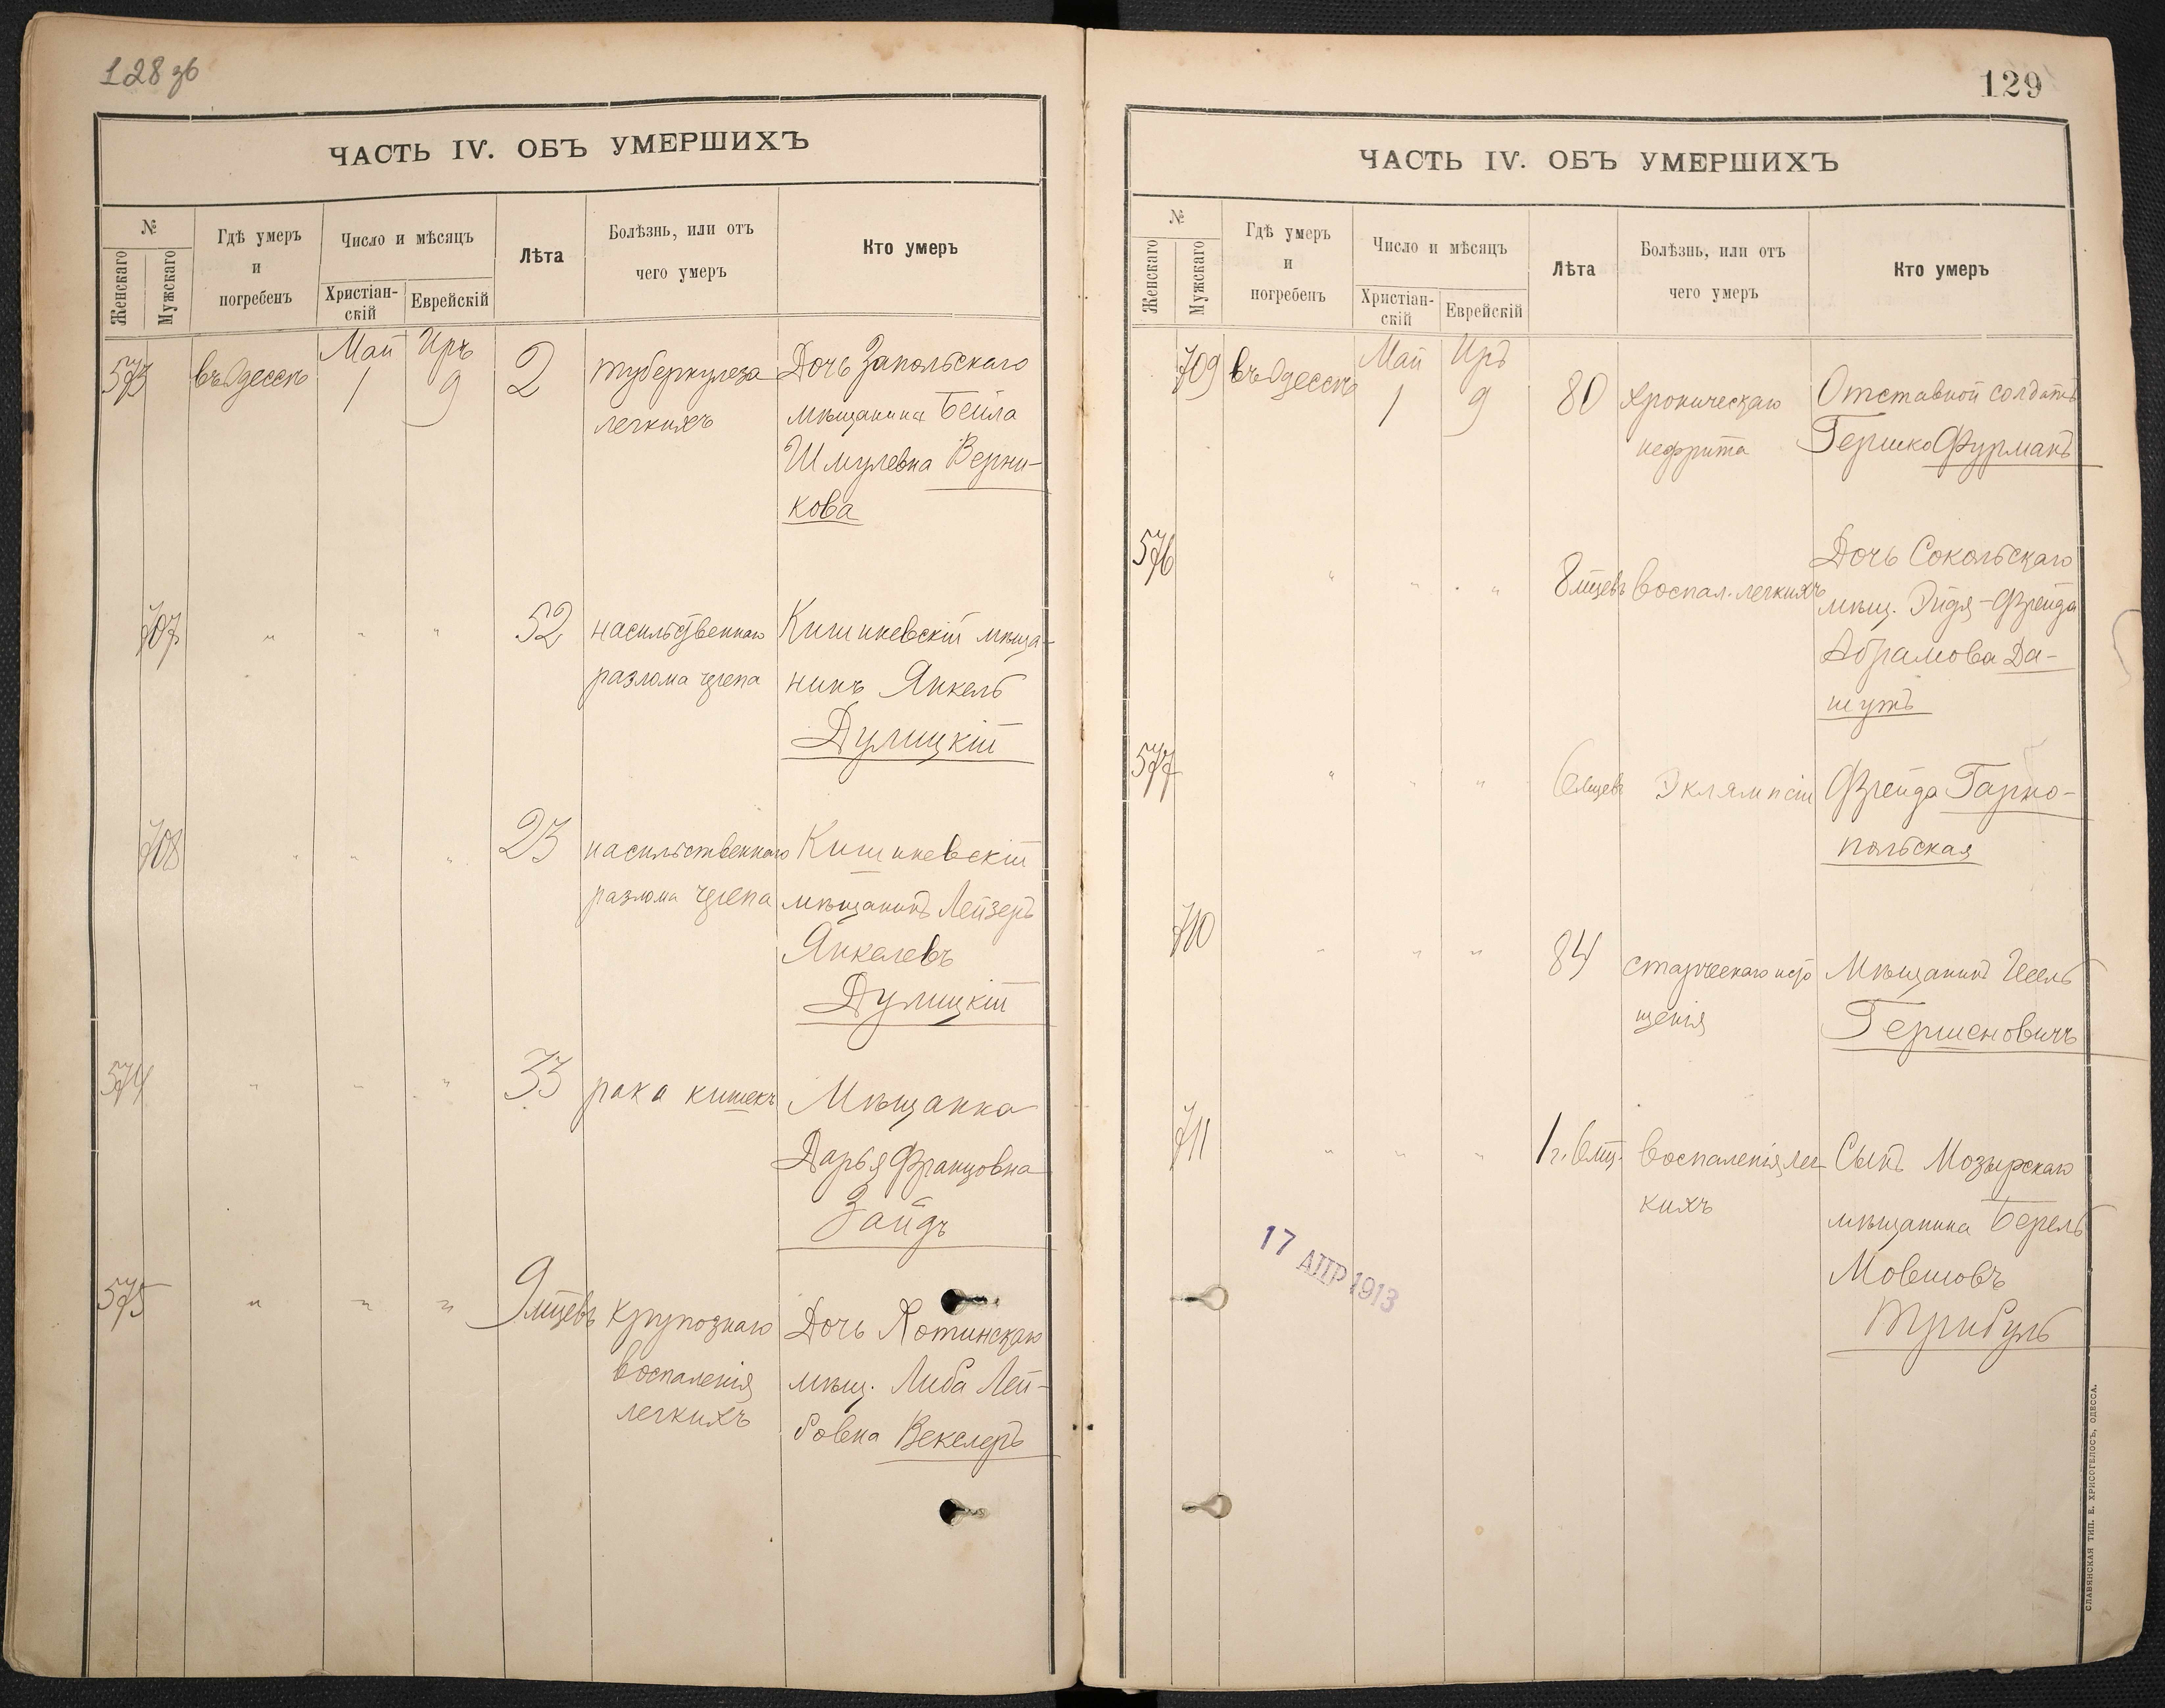 128 зв
ЧАСТЬ IV. ОБЪ УМЕРШИХЪ
№
Женскаго
Мужскаго
Гдѣ умеръ
и
погребенъ
Число и мѣсяцъ
Христіан-
скій
Еврейскій
Лѣта
Болѣзнь, или отъ
чего умеръ
Кто умеръ
Май Иръ
573 въ Одессѣ 1 9 2 туберкулеза Дочь Запольскаго
легкихъ мѣщанина Бейла
Шмулевна Верни-
кова
707 " " " 52 насильственнаго Кишиневскій мѣща-
разлома черепа нинъ Янкель
Дулицкій
708 " " " 23 насильственнаго Кишиневскій
разлома черепа мѣщанинъ Лейзеръ
Янкелевъ
Дулицкій
574 " " " 33 рака кишекъ Мѣщанка
Дарья Францовна
Зайдъ
575 " " " 9 мцевъ крупознаго Дочь Хотинскаго
воспаленія мѣщ. Либа Лей-
легкихъ бовна Векслеръ
129
ЧАСТЬ IV. ОБЪ УМЕРШИХЪ
№
Женскаго
Мужскаго
Гдѣ умеръ
и
погребенъ
Число и мѣсяцъ
Христіан-
скій
Еврейскій
Лѣта
Болѣзнь, или отъ
чего умеръ
Кто умеръ
Май Иръ
709 въ Одессѣ 1 9 80 хроническаго Отставной солдатъ
нефрита Гершко Фурманъ
576 " " " 8 мцевъ воспал. легкихъ Дочь Сокольскаго
мѣщ. Эйдя-Фрейда
Абрамова Да-
шутъ
577 " " " 6 мцевъ Эклямпсіи Фрейда Тарно-
польская
710 " " " 84 старческаго исто Мѣщанинъ Иосль
щенія Гершеновичъ
711 " " " 1 г. 6 мц. воспаленія лег- Сынъ Мозырскаго
кихъ мѣщанина Берель
Мовшовъ
Трибуль
17 АПР 1913
СЛАВЯНСКАЯ ТИП. Е. ХРИСОГЕЛОСЪ, ОДЕССА.